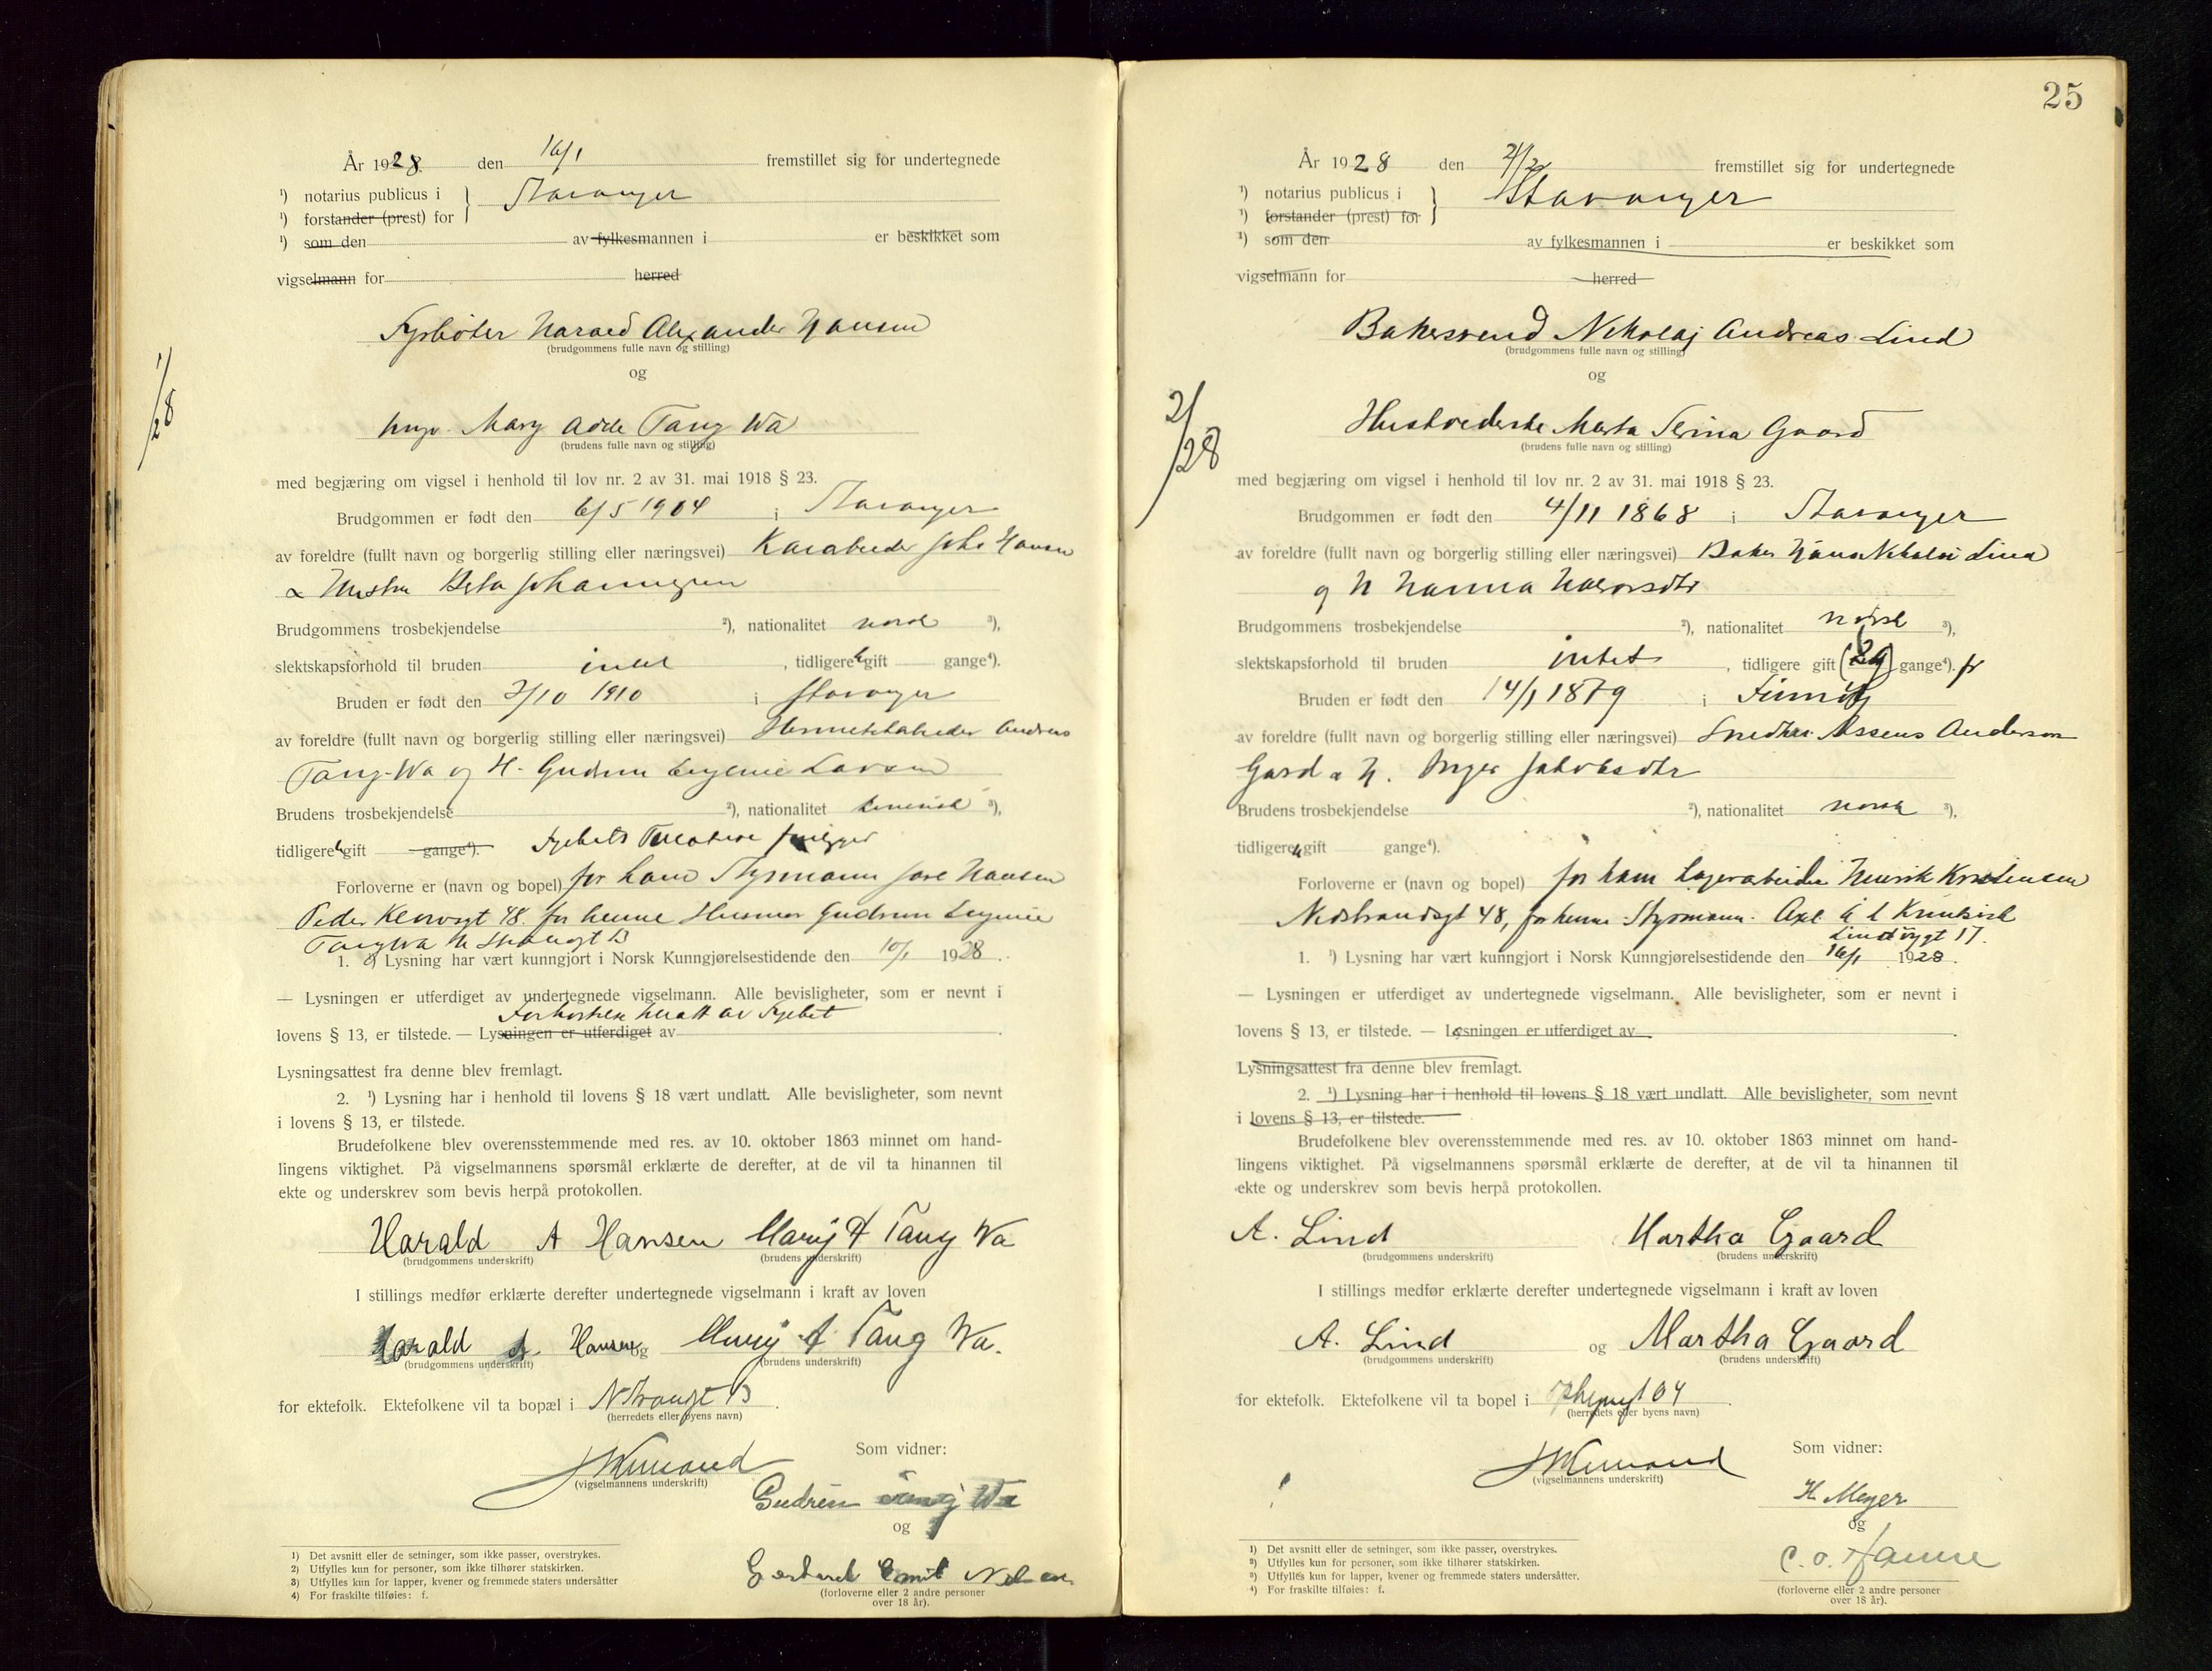 År 1928 den 16/1 fremstillet sig for undertegnede
¹) notarius publicus i
¹) forstander (prest) for } Stavanger
¹) som den av fylkesmannen i er beskikket som
vigselmann for herred
Fyrbøter Harald Alexander Hansen
(brudgommens fulle navn og stilling)
og
1/28
ungp. Mary Adele Tang Wa
(brudens fulle navn og stilling)
med begjæring om vigsel i henhold til lov nr. 2 av 31. mai 1918 § 23.
Brudgommen er født den 6/5 1904 i Stavanger
av foreldre (fullt navn og borgerlig stilling eller næringsvei) Hansen
& Hustru Berta Johannesen
Brudgommens trosbekjendelse ²), nationalitet norsk ³),
slektskapsforhold til bruden intet , tidligere gift gange⁴).
Bruden er født den 3/10 1910 i Stavanger
av foreldre (fullt navn og borgerlig stilling eller næringsvei) Hermetikarbeider Andreas
Tang-Wa og H. Gudrun Eugenie Larsen
Brudens trosbekjendelse ²), nationalitet kinesisk ³),
tidligere gift gange⁴). Fylkets
Forloverne er (navn og bopel) for ham Styrmann Hansen
Peder Klowsgt 48. for henne Husmor Gudrun Eugenie
Tang Wa N Strandgt 13
1. ¹) Lysning har vært kunngjort i Norsk Kunngjørelsestidende den 10/1 1928.
— Lysningen er utferdiget av undertegnede vigselmann. Alle bevisligheter, som er nevnt i
av Fylket
lovens § 13, er tilstede. — Lysningen er utferdiget av
Lysningsattest fra denne blev fremlagt.
2. ¹) Lysning har i henhold til lovens § 18 vært undlatt. Alle bevisligheter, som nevnt
i lovens § 13, er tilstede.
Brudefolkene blev overensstemmende med res. av 10. oktober 1863 minnet om hand-
lingens viktighet. På vigselmannens spørsmål erklærte de derefter, at de vil ta hinannen til
ekte og underskrev som bevis herpå protokollen.
Harald A Hansen Mary A Tang Wa
(brudgommens underskrift) (brudens underskrift)
I stillings medfør erklærte derefter undertegnede vigselmann i kraft av loven
Harald A. Hansen og Mary A Tang Wa.
(brudgommens underskrift) (brudens underskrift)
for ektefolk. Ektefolkene vil ta bopæl i N Strandgt 13
(herredets eller byens navn)
Som vidner:
(vigselmannens underskrift)
Gudrun Tang Wa
og
Gerhard Emil Nilsen
(forloverne eller 2 andre personer
over 18 år).
1) Det avsnitt eller de setninger, som ikke passer, overstrykes.
2) Utfylles kun for personer, som ikke tilhører statskirken.
3) Utfylles kun for lapper, kvener og fremmede staters undersåtter
4) For fraskilte tilføies: f.
25
År 1928 den 2/2 fremstillet sig for undertegnede
¹) notarius publicus i
¹) forstander (prest) for } Stavanger
¹) som den av fylkesmannen i er beskikket som
vigselmann for herred
Bakersvend Nikolaj Andreas Lind
(brudgommens fulle navn og stilling)
og
2/28
Husholderske Marta Serina Gaard
(brudens fulle navn og stilling)
med begjæring om vigsel i henhold til lov nr. 2 av 31. mai 1918 § 23.
Brudgommen er født den 4/11 1868 i Stavanger
av foreldre (fullt navn og borgerlig stilling eller næringsvei) Baker Hans Nikolai Lind
og H Hanna Halvorsdtr
Brudgommens trosbekjendelse ²), nationalitet norsk ³),
slektskapsforhold til bruden intet , tidligere gift gange⁴).
Bruden er født den 14/1 1879 i Finnøy
av foreldre (fullt navn og borgerlig stilling eller næringsvei) Snedker Assens Anderson
Gard & H. Inger Jakobsdtr
Brudens trosbekjendelse ²), nationalitet norsk ³),
tidligere gift gange⁴).
Forloverne er (navn og bopel) for ham Lagerarbeider Henrik Kristensen
Nedstrandsgt 48, for henne Styrmann Axel
Lindøygt 17.
1. ¹) Lysning har vært kunngjort i Norsk Kunngjørelsestidende den 16/1 1928.
— Lysningen er utferdiget av undertegnede vigselmann. Alle bevisligheter, som er nevnt i
lovens § 13, er tilstede. — Lysningen er utferdiget av
Lysningsattest fra denne blev fremlagt.
2. ¹) Lysning har i henhold til lovens § 18 vært undlatt. Alle bevisligheter, som nevnt
i lovens § 13, er tilstede.
Brudefolkene blev overensstemmende med res. av 10. oktober 1863 minnet om hand-
lingens viktighet. På vigselmannens spørsmål erklærte de derefter, at de vil ta hinannen til
ekte og underskrev som bevis herpå protokollen.
A. Lind Martha Gaard
(brudgommens underskrift) (brudens underskrift)
I stillings medfør erklærte derefter undertegnede vigselmann i kraft av loven
A. Lind og Martha Gaard
(brudgommens underskrift) (brudens underskrift)
for ektefolk. Ektefolkene vil ta bopel i
(herredets eller byens navn)
Som vidner:
(vigselmannens underskrift)
H. Meyer
og
C. O. Hanne
(forloverne eller 2 andre personer
over 18 år).
1) Det avsnitt eller de setninger, som ikke passer, overstrykes.
2) Utfylles kun for personer, som ikke tilhører statskirken.
3) Utfylles kun for lapper, kvener og fremmede staters undersåtter.
4) For fraskilte tilføies: f.